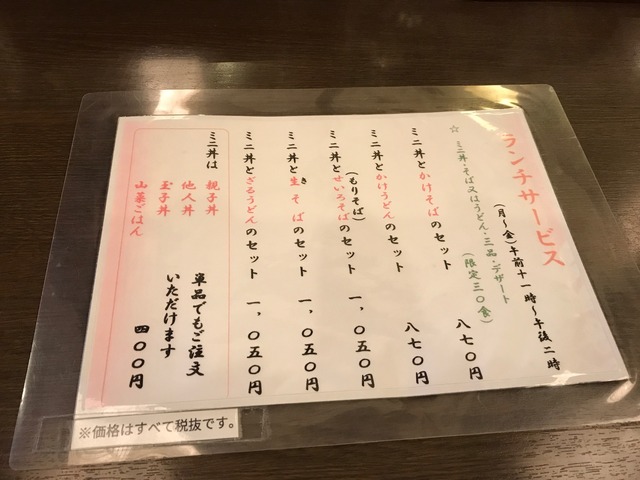 ランチサービス
(月〜金)午前十一時〜午後二時
☆ ミニ丼・そば又はうどん・三品・デザート
(限定三〇食)
ミニ丼とかけそばのセット 八七〇円
ミニ丼とかけうどんのセット 八七〇円
(もりそば)
ミニ丼とせいろそばのセット 一,〇五〇円
き
ミニ丼と生そばのセット 一,〇五〇円
ミニ丼とざるうどんのセット 一,〇五〇円
ミニ丼は 親子丼
他人丼
玉子丼
山菜ごはん
単品でもご注文
いただけます
四〇〇円
※価格はすべて税抜です。